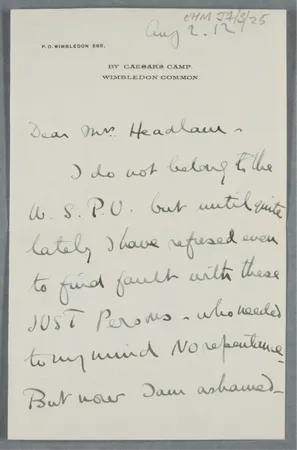 CHM J7/8/25
Aug 2. 12
P.O. WIMBLEDON 580.
BY CAESAR'S CAMP.
WIMBLEDON COMMON.
Dear Mrs. Headlam -
I do not belong to the
W. S. P. U. but until quite
lately I have refused even
to find fault with these
JUST Persons - who needed
to my mind No repentance -
But now I am ashamed -